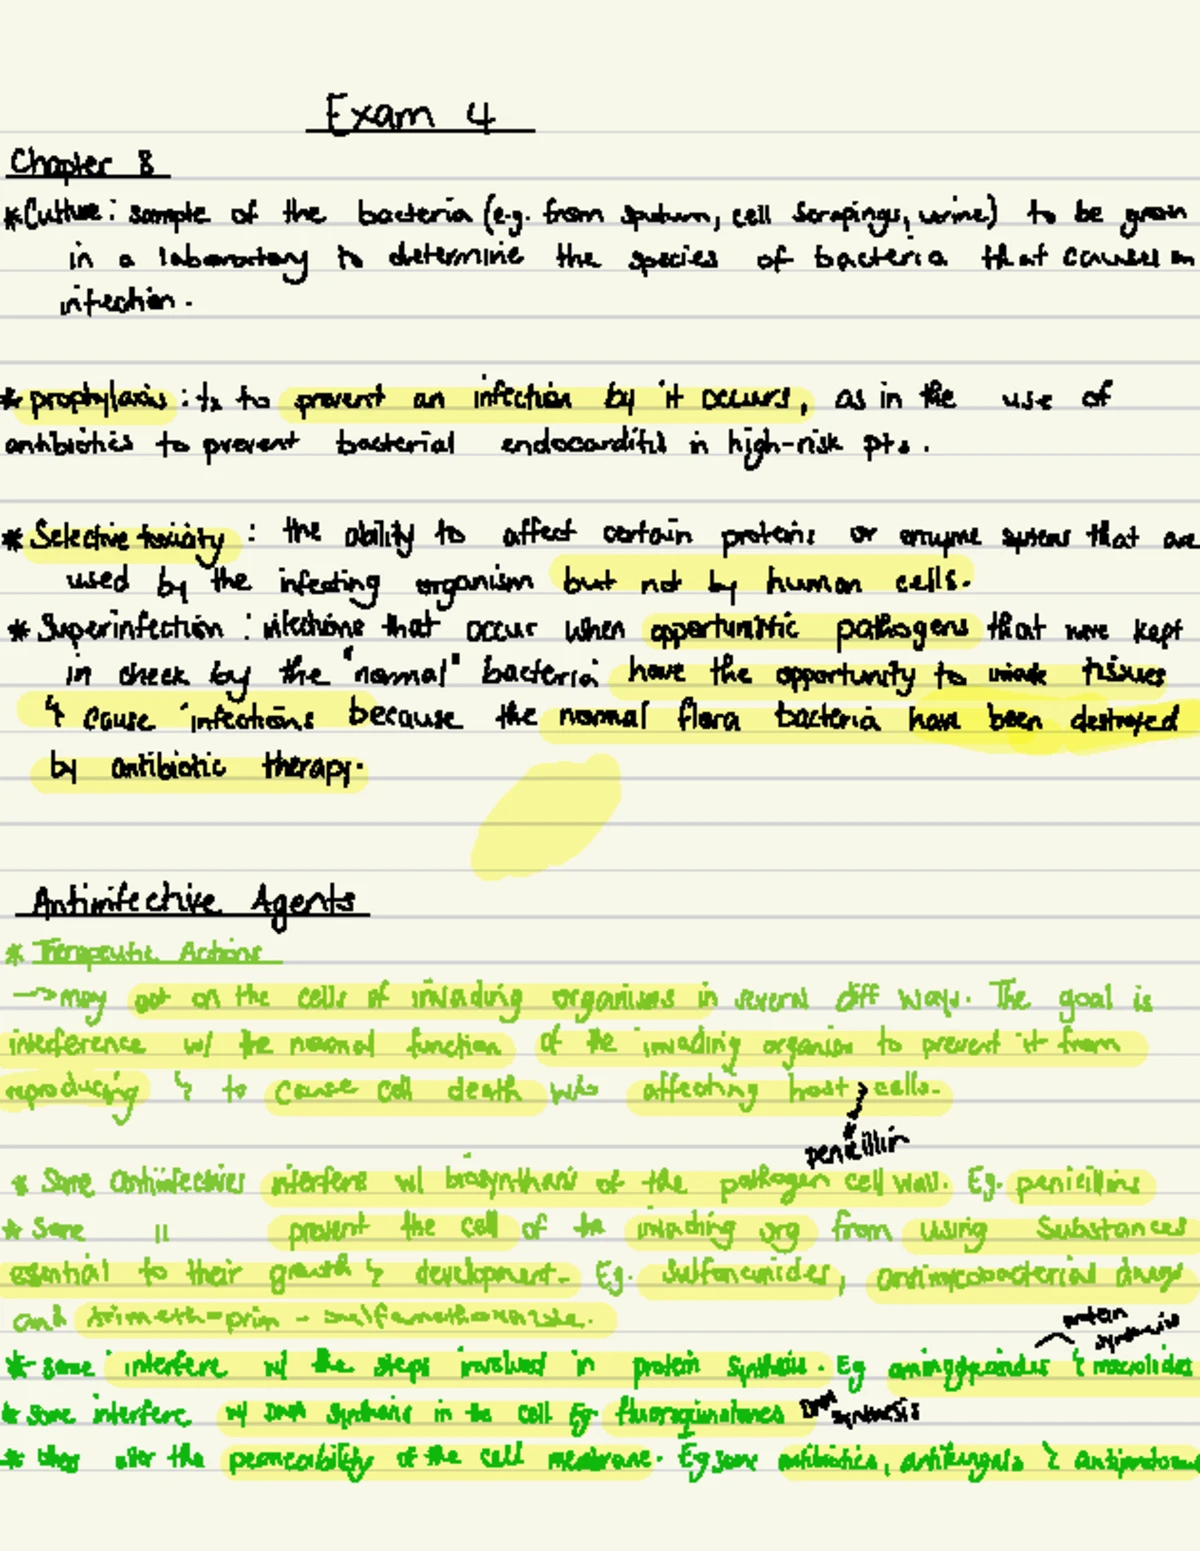 Exam 4
Chapter 8
* Culture : sample of the bacteria (e.g. from sputum, cell scrapings, urine) to be grown
in a laboratory to determine the species of bacteria that causes an
infection.
* prophylaxis : tx to prevent an infection by it occurs, as in the use of
antibiotics to prevent bacterial endocarditis in high-risk pts.
* Selective toxicity : the ability to affect certain proteins or enzyme systems that are
used by the infecting organism but not by human cells.
* Superinfection : infections that occur when opportunistic pathogens that were kept
in check by the "normal" bacteria have the opportunity to invade tissues
& cause infections because the normal flora bacteria have been destroyed
by antibiotic therapy.
Antiinfective Agents
* Therapeutic Actions
-> may act on the cells of invading organisms in several diff ways. The goal is
interference w/ the normal function of the invading organism to prevent it from
reproducing & to cause cell death w/o affecting host cells.
penicillin
* Some antiinfectives interfere w/ biosynthesis of the pathogen cell wall. Eg. penicillins
* Some " prevent the cell of the invading org from using substances
essential to their growth & development. Eg. Sulfonamides, antimycobacterial drugs
and trimeth-prim - sulfamethoxazole.
protein synthesis
* some interfere w/ the steps involved in protein synthesis. Eg aminoglycosides & macrolides
* some interfere w/ DNA synthesis in the cell Eg fluoroquinolones DNA synthesis
* alter the permeability of the cell membrane. Eg some antibiotics, antifungals & antiprotozoal